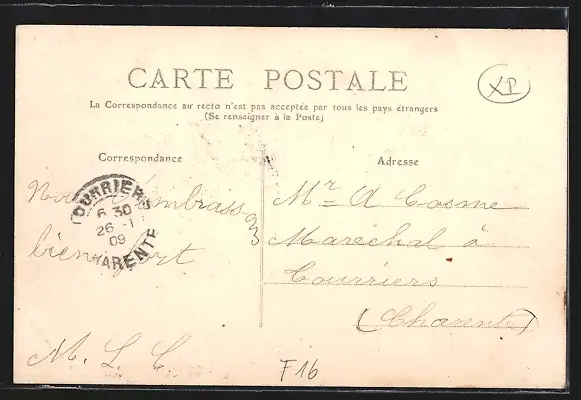 CARTE POSTALE
XP
La Correspondance au recto n'est pas acceptée par tous les pays étrangers
(Se renseigner à la Poste)
Correspondance
Adresse
OURRIERS
6 30
26 -1
09
CHARENTE
embrass
bien fort
M. L. C.
Mr A Cosme
Maréchal à
Courriers
(Charente)
F16